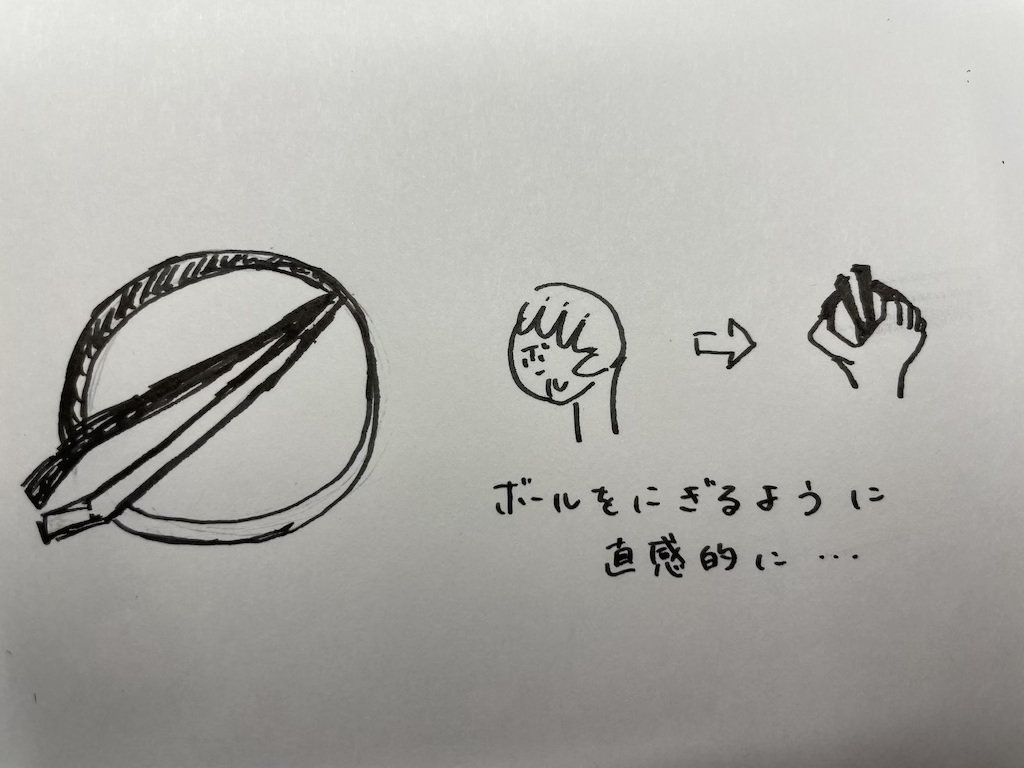 ボール
ボールをにぎるように
直感的に…